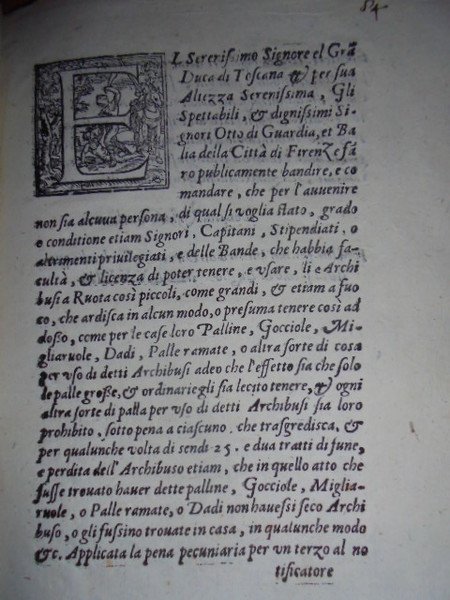 54
EL Serenissimo Signore el Grã
Duca di Toscana & per sua
Altezza Serenissima, Gli
Spettabili, & dignissimi Si-
gnori Otto di Guardia, et Ba
lia della Città di Firenze fã
ro publicamente bandire, e co
mandare, che per l'auuenire
non sia alcuua persona, di qual si voglia stato, grado
e conditione etiam Signori, Capitani, Stipendiati, o
altrimenti priuilegiati, e delle Bande, che habbia fa-
cultà, & licenza di poter tenere, e vsare, li e Archi
busi a Ruota così piccoli, come grandi, & etiam a fuo
co, che ardisca in alcun modo, o presuma tenere così ad
dosso, come per le case loro Palline, Gocciole, Mi-
gliaruole, Dadi, Palle ramate, o altra sorte di cosa
per vso di detti Archibusi adeo che l'effetto sia che solo
le palle grosse, & ordinarie gli sia lecito tenere, & ogni
altra sorte di palla per vso di detti Archibusi sia loro
prohibito, sotto pena a ciascuno, che trasgredisca, &
per qualunche volta di scudi 25. e dua tratti di fune,
e perdita dell'Archibuso etiam, che in quello atto che
fusse trouato hauer dette palline, Gocciole, Miglia-
ruole, o Palle ramate, o Dadi non hauessi seco Archi
buso, o gli fussino trouate in casa, in qualunche modo
&c. Applicata la pena pecuniaria per vn terzo al no
tificatore